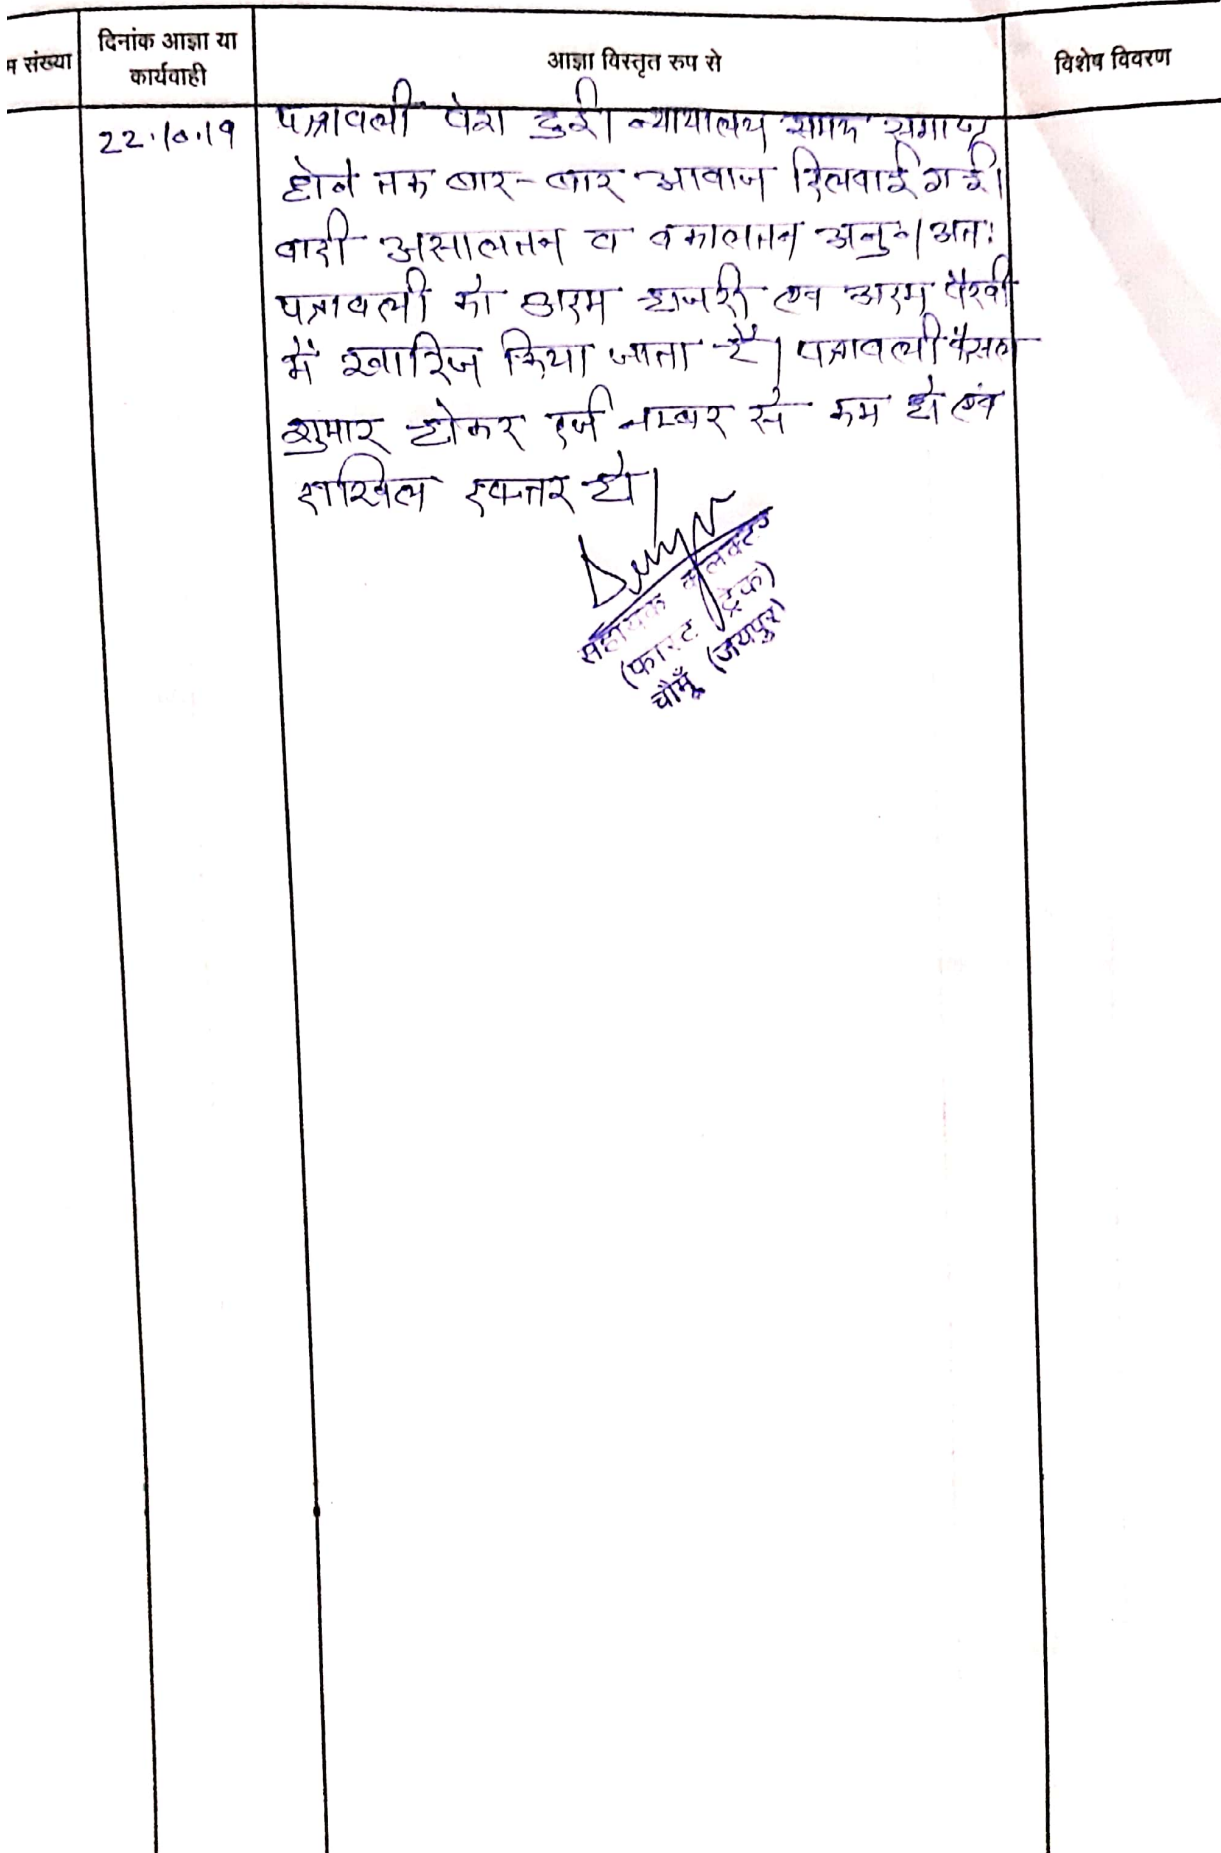 संख्या
दिनांक आज्ञा या
कार्यवाही
आज्ञा विस्तृत रुप से
विशेष विवरण
22.10.19
पत्रावली पेश हुई। न्यायालय समय समाप्त
होने तक बार-बार आवाज दिलवाई गई।
वादी असालतन व वकालतन अनु०। अतः
पत्रावली को अदम हाजरी एवं अदम पैरवी
में खारिज किया जाता है। पत्रावली फैसल
शुमार होकर दर्ज नम्बर से कम हो एवं
दाखिल दफ्तर हो।
सहायक कलक्टर
(फास्ट ट्रेक)
चौमूँ (जयपुर)